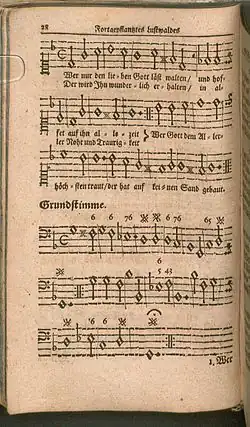 28 Fortgepflantztes Lustwaldes
Wer nur den lie- ben Gott läst walten/ und hof-
Der wird Ihn wunder- lich er- halten/ in al-
fet auf ihn al- le- zeit Wer Gott dem Al- ler-
ler Noht und Traurig- keit
höch- sten traut/ der hat auf kei- nen Sand gebaut.
Grundstimme.
6 6 6 76 6 76 65
6 5 43
6 6
1. Wer